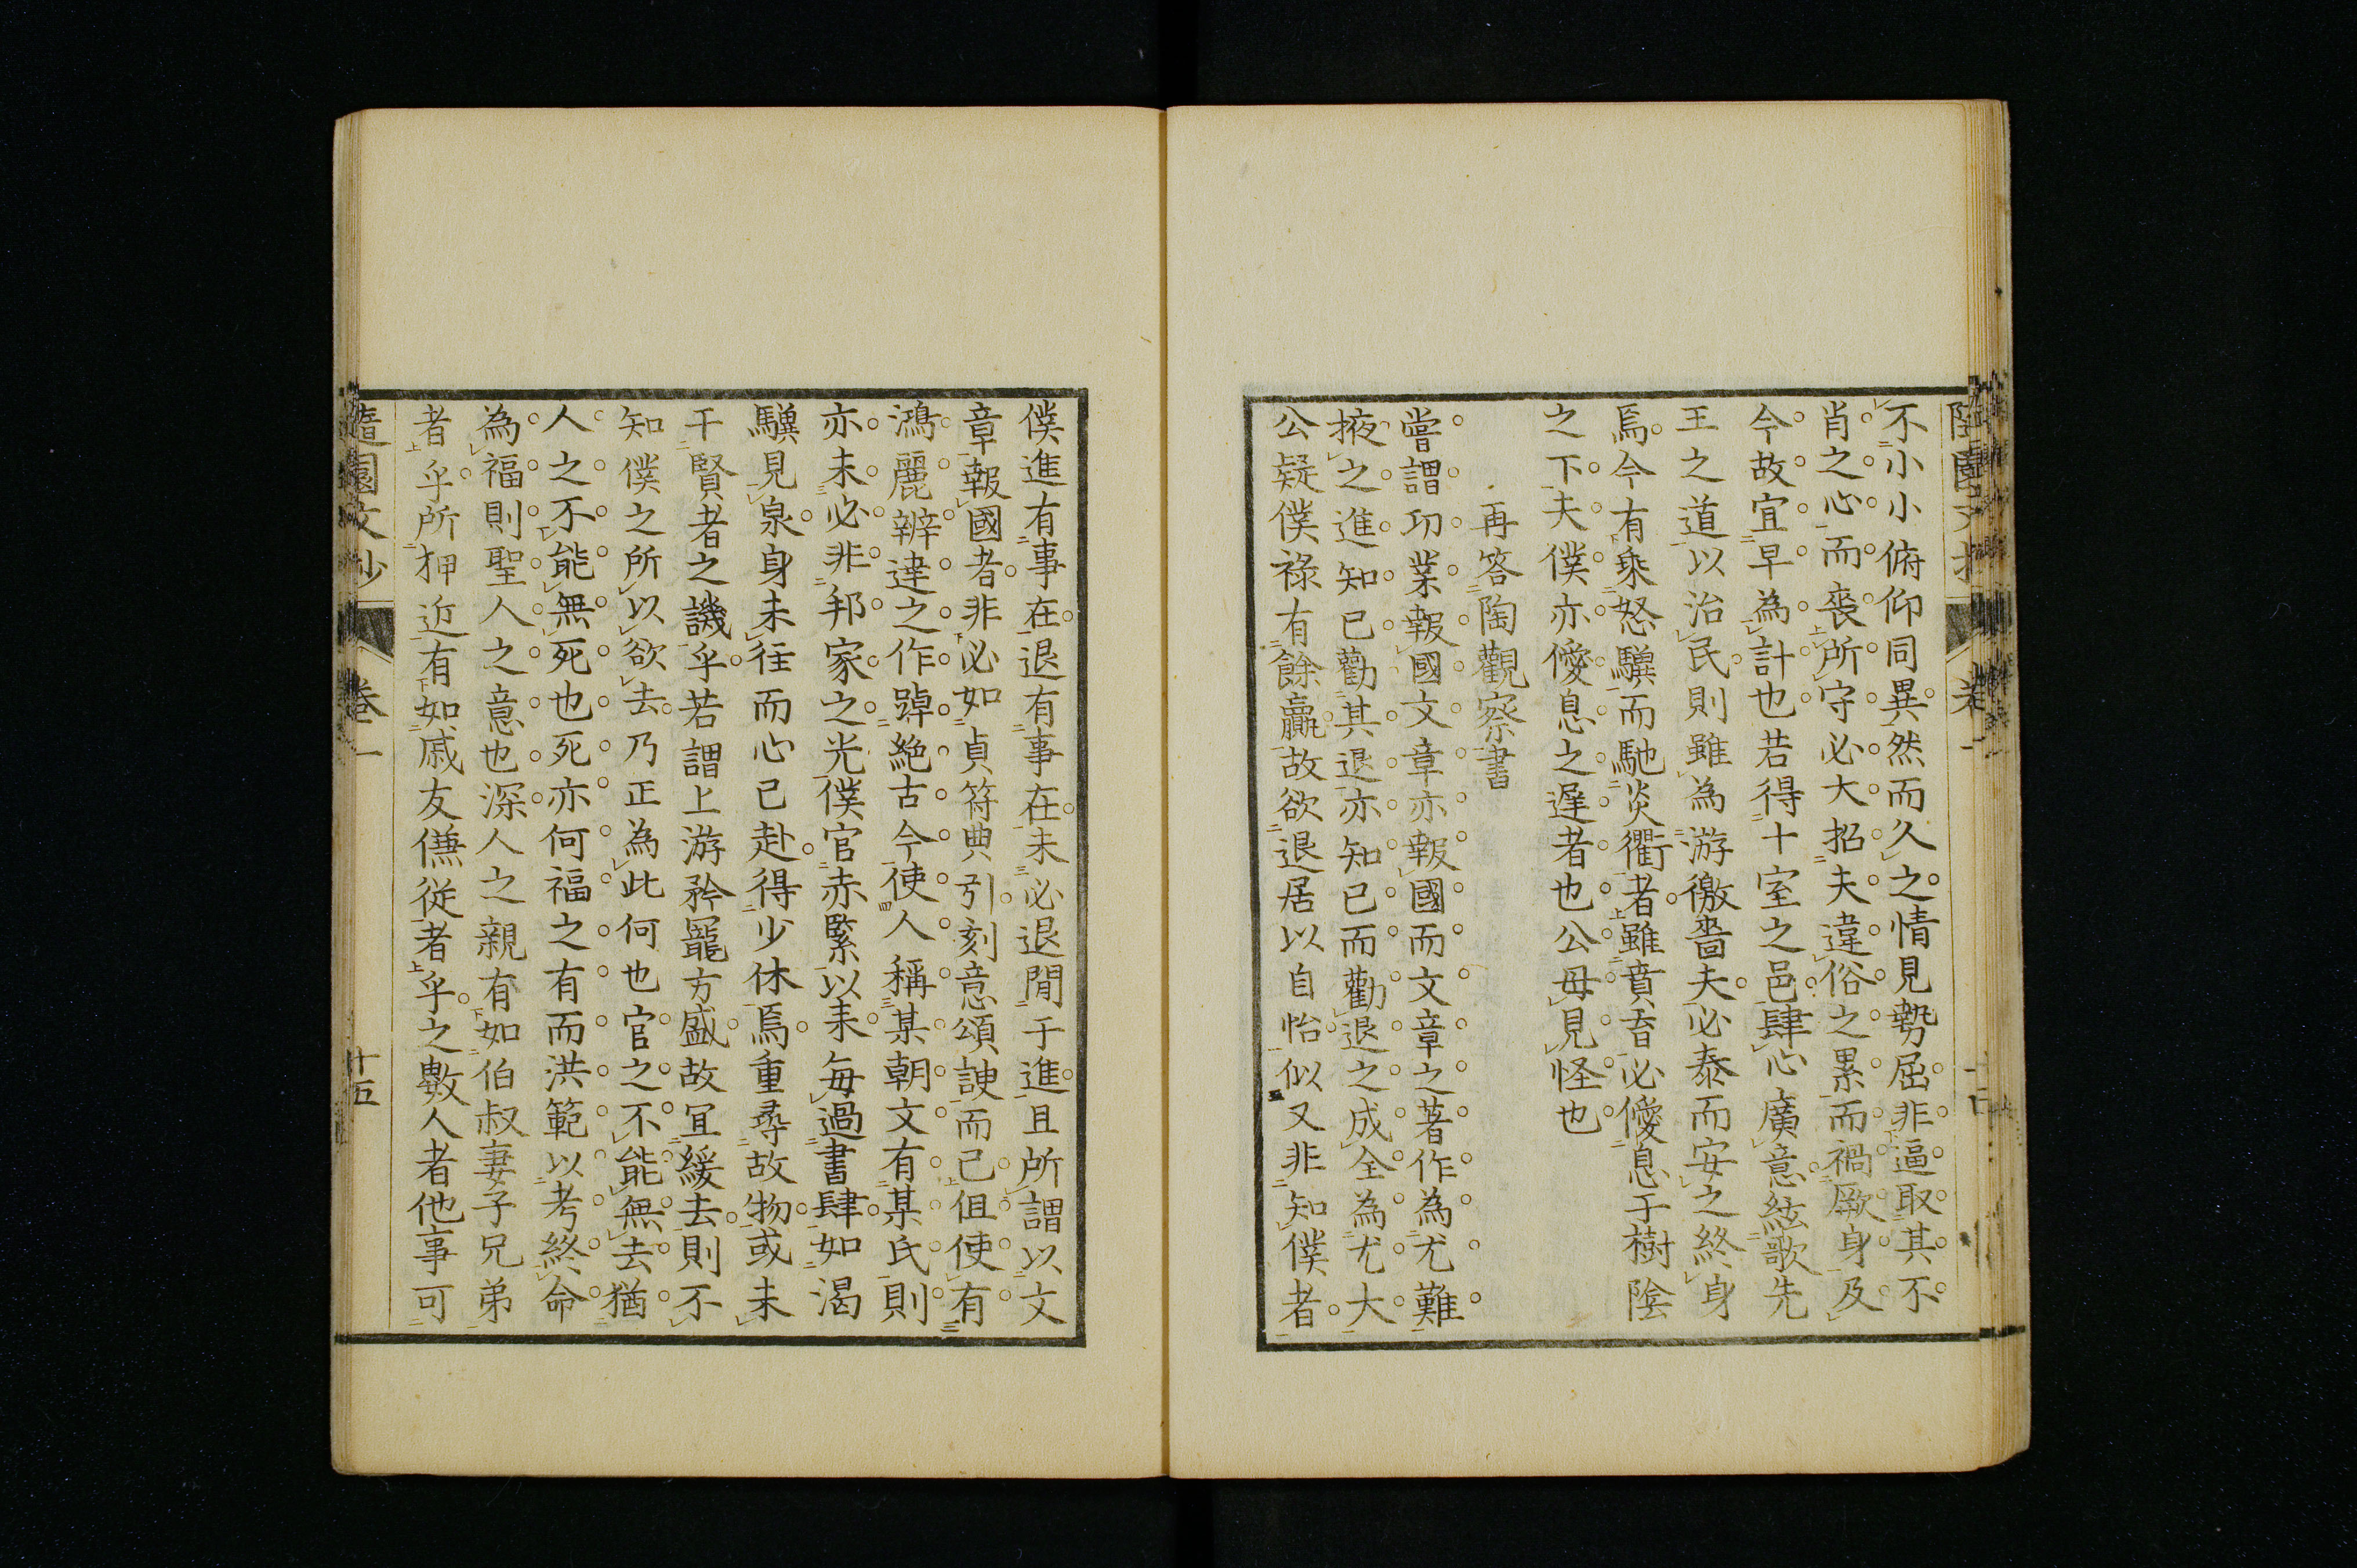 不小小俯仰同異然而久之情見勢屈非逼取其不
肖之心而喪所守必大招夫違俗之累而禍厥身及
今故宜早為計也若得十室之邑肆心廣意絃歌先
王之道以治民則雖為游徼嗇夫必泰而安之終身
焉今有乘怒驥而馳炎衢者雖賁育必僾息于樹陰
之下夫僕亦僾息之遲者也公毋見怪也
再答陶觀察書
嘗謂功業報國文章亦報國而文章之著作為尤難
掖之進知已勸其退亦知已而勸退之成全為尤大
公疑僕祿有餘贏故欲退居以自怡似又非知僕者
僕進有事在退有事在未必退閒于進且所謂以文
章報國者非必如貞符典引刻意頌諛而已但使有
鴻麗辨達之作踔絕古今使人稱某朝文有某氏則
亦未必非邦家之光僕官赤緊以来每過書肆如渴
驥見泉身未往而心已赴得少休焉重尋故物或未
干賢者之譏乎若謂上游矜寵方盛故宜緩去則不
知僕之所以欲去乃正為此何也官之不能無去猶
人之不能無死也死亦何福之有而洪範以考終命
為福則聖人之意也深人之親有如伯叔妻子兄弟
者乎所狎近有如戚友傔從者乎之數人者他事可
隨園文抄
卷一
十五